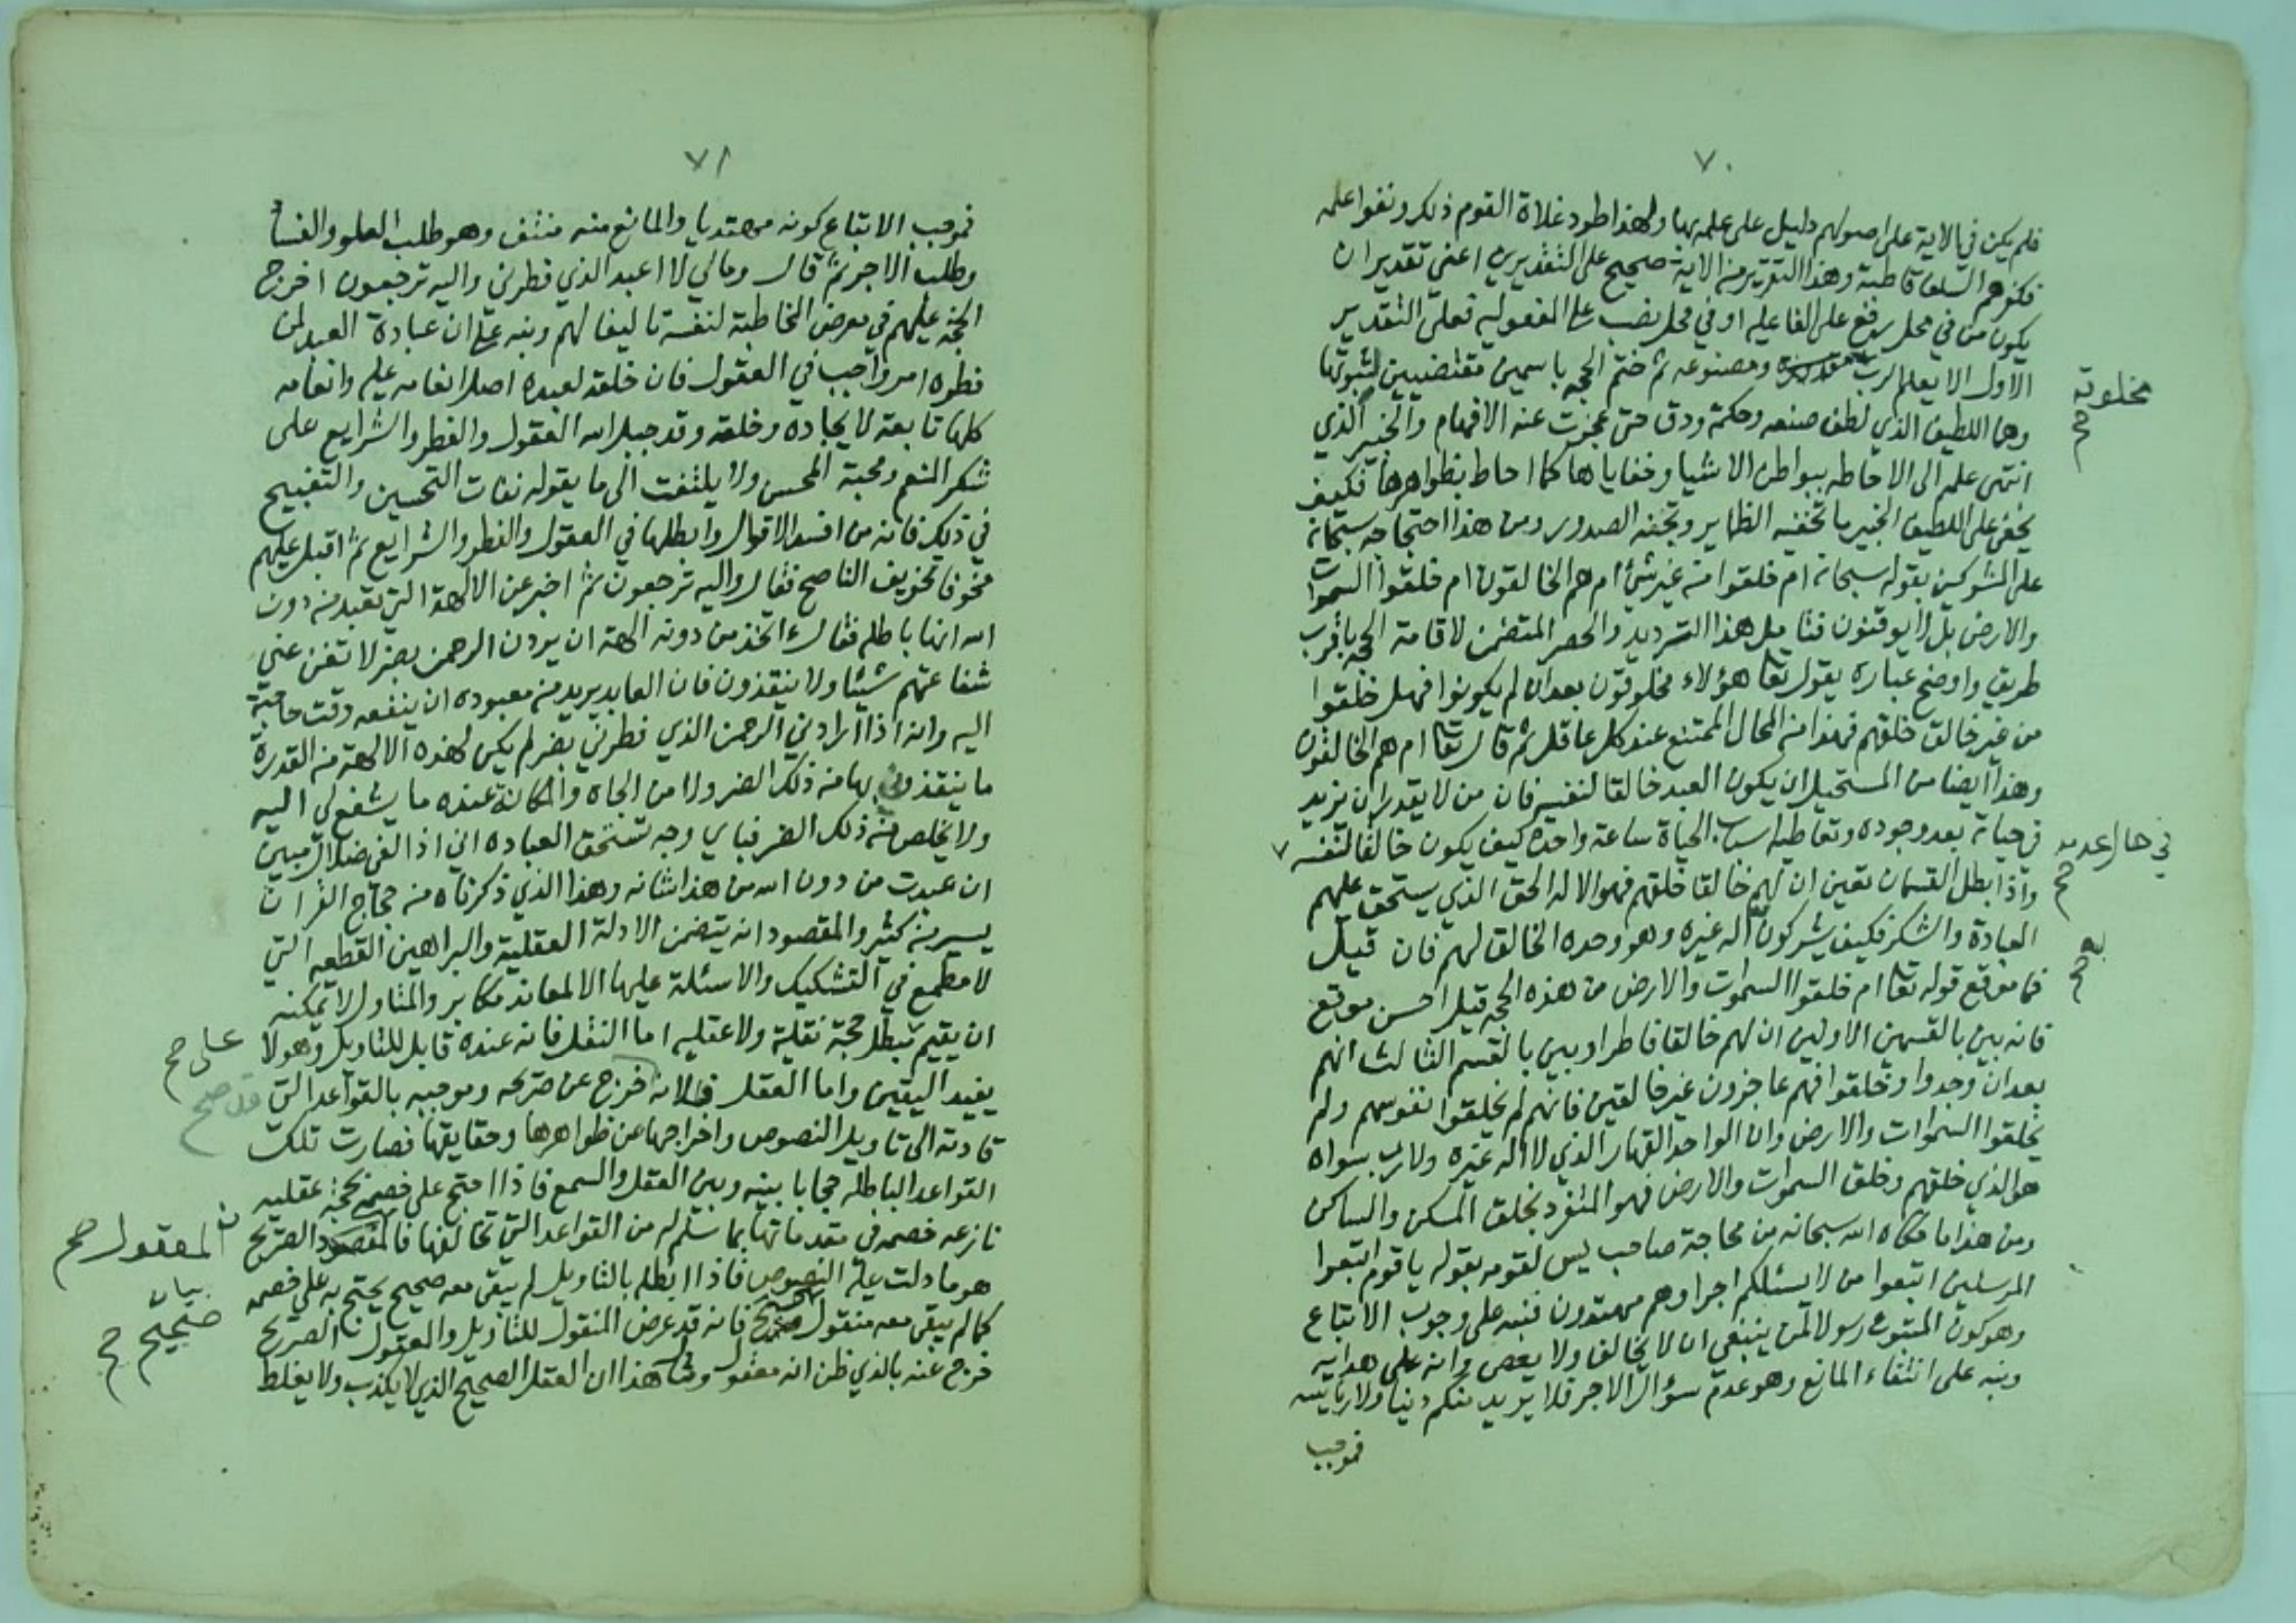 ٧٠
فلم يكن في الاية على اصولهم دليل على علمه بها ولهذا طرد غلاة القوم ذلك ونفوا علمه
فكفرهم السلف قاطبة وهذا التقرير من الاية صحيح على التقديرين اعني تقدير ان
يكون من في محل رفع على الفاعليه او في محل نصب على المفعوليه فعلى التقدير
الاول الا يعلم الرب مخلوقه ومصنوعه ثم ختم الحجه باسمين مقتضيين لثبوتها
وهما اللطيف الذي لطف صنعه وحكمته ودق حتى عجزت عنه الافهام والخبير الذي
انتهى علمه الى الاحاطه ببواطن الاشيا وخفاياها كما احاط بظواهرها فكيف
يخفى على اللطيف الخبير ما تخفيه الضماير وتجنه الصدور ومن هذا احتجاجه سبحانه
على المشركين بقوله سبحانه ام خلقوا من غير شئ ام هم الخالقون ام خلقوا السموات
والارض بل لا يوقنون فتامل هذا الترديد والحصر المتضمن لاقامة الحجه باقرب
طريق واوضح عباره يقول تعا هؤلاء مخلوقون بعد ان لم يكونوا فهل خلقوا
من غير خالق خلقهم فهذا من المحال الممتنع عند كل عاقل ثم قال تعا ام هم الخالقون
وهذا ايضا من المستحيل ان يكون العبد خالقا لنفسه فان من لا يقدر ان يزيد
في حياته بعد وجوده وتعاطيه اسباب الحياة ساعة واحدة كيف يكون خالقا لنفسه
في حال عدمه صح
واذا بطل القسمان تعين ان لهم خالقا خلقهم فهو الاله الحق الذي يستحق عليهم
العبادة والشكر فكيف يشركون به اله غيره وهو وحده الخالق لهم فان قيل
فما موقع قوله تعا ام خلقوا السموات والارض من هذه الحجه قيل احسن موقع
فانه بين بالقسمين الاولين ان لهم خالقا فاطرا وبين بالقسم الثالث انهم
بعد ان وجدوا وخلقوا فهم عاجزون غير خالقين فانهم لم يخلقوا نفوسهم ولم
يخلقوا السموات والارض وان الواحد القهار الذي لا اله غيره ولا رب سواه
هو الذي خلقهم وخلق السموات والارض فهو المتفرد بخلق المسكن والساكن
ومن هذا ما حكاه الله سبحانه من محاجة صاحب يس لقومه بقوله يا قوم اتبعوا
المرسلين اتبعوا من لا يسئلكم اجرا وهم مهتدون فنبه على وجوب الاتباع
وهو كون المتبوع رسولا لمن ينبغي ان لا يخالف ولا يعصى وانه على هدايه
ونبه على انتفاء المانع وهو عدم سؤال الاجر فلا يريد منكم دنيا ولا رياسه
فموجب
مخلوقه صح
به صح
٧١
فموجب الاتباع كونه مهتديا والمانع منه منتف وهو طلب العلو والفسا
وطلب الاجر ثم قال ومالي لا اعبد الذي فطرني واليه ترجعون اخرج
الحجة عليهم في معرض المخاطبة لنفسه تاليفا لهم ونبه على ان عبادة العبد لمن
فطره امر واجب في العقول فان خلقه لعبده اصل انعامه عليه وانعامه
كلها تابعة لايجاده وخلقه وقد جبل الله العقول والفطر والشرايع على
شكر المنعم ومحبة المحسن ولا يلتفت الى ما يقوله نفات التحسين والتقبيح
في ذلك فانه من افسد الاقوال وابطلها في العقول والفطر والشرايع ثم اقبل عليهم
مخوفا تخويف الناصح فقال واليه ترجعون ثم اخبر عن الالهة التي تعبد من دون
الله انها باطله فقال ءاتخذ من دونه الهة ان يردن الرحمن بضر لا تغن عني
شفاعتهم شيئا ولا ينقذون فان العابد يريد من معبوده ان ينفعه وقت حاجته
اليه وانه اذا ارادني الرحمن الذي فطرني بضر لم يكن لهذه الالهة من القدرة
ما ينقذوني بها من ذلك الضر ولا من الجاه والمكانة عنده ما يشفع لي اليه
ولا يخلص من ذلك الضر فباي وجه تستحق العباده اني اذا لفي ضلال مبين
ان عبدت من دون الله من هذا شانه وهذا الذي ذكرناه من حجاج القران
يسير من كثير والمقصود انه يتضمن الادلة العقلية والبراهين القطعيه التي
لا مطمع في التشكيك والاسئلة عليها الا لمعاند مكابر والمتاول لا يمكنه
ان يقيم مبطل حجة نقلية ولا عقليه اما النقل فانه عنده قابل للتاويل وهو لا
على صح
يفيد اليقين واما العقل فلانه خرج عن صريحه وموجبه بالقواعد التي
قد صح
قادته الى تاويل النصوص واخراجها عن ظواهرها وحقايقها فصارت تلك
القواعد الباطله حجابا بينه وبين العقل والسمع فاذا احتج على خصمه بحجة عقليه
نازعه خصمه في مقدماتها بما سلم له من القواعد التي تخالفها فالمقصود الصريح
المعقول صح
هو ما دلت عليه النصوص فاذا ابطله بالتاويل لم يبقى معه صحيح يحتج به على خصمه
كما لم يبقى معه منقول صحيح فانه قد عرض المنقول للتاويل والمعقول الصريح
بيان
صحيح صح
خرج عنه بالذي ظن انه معقول ومثال هذا ان العقل الصحيح الذي لا يكذب ولا يغلط